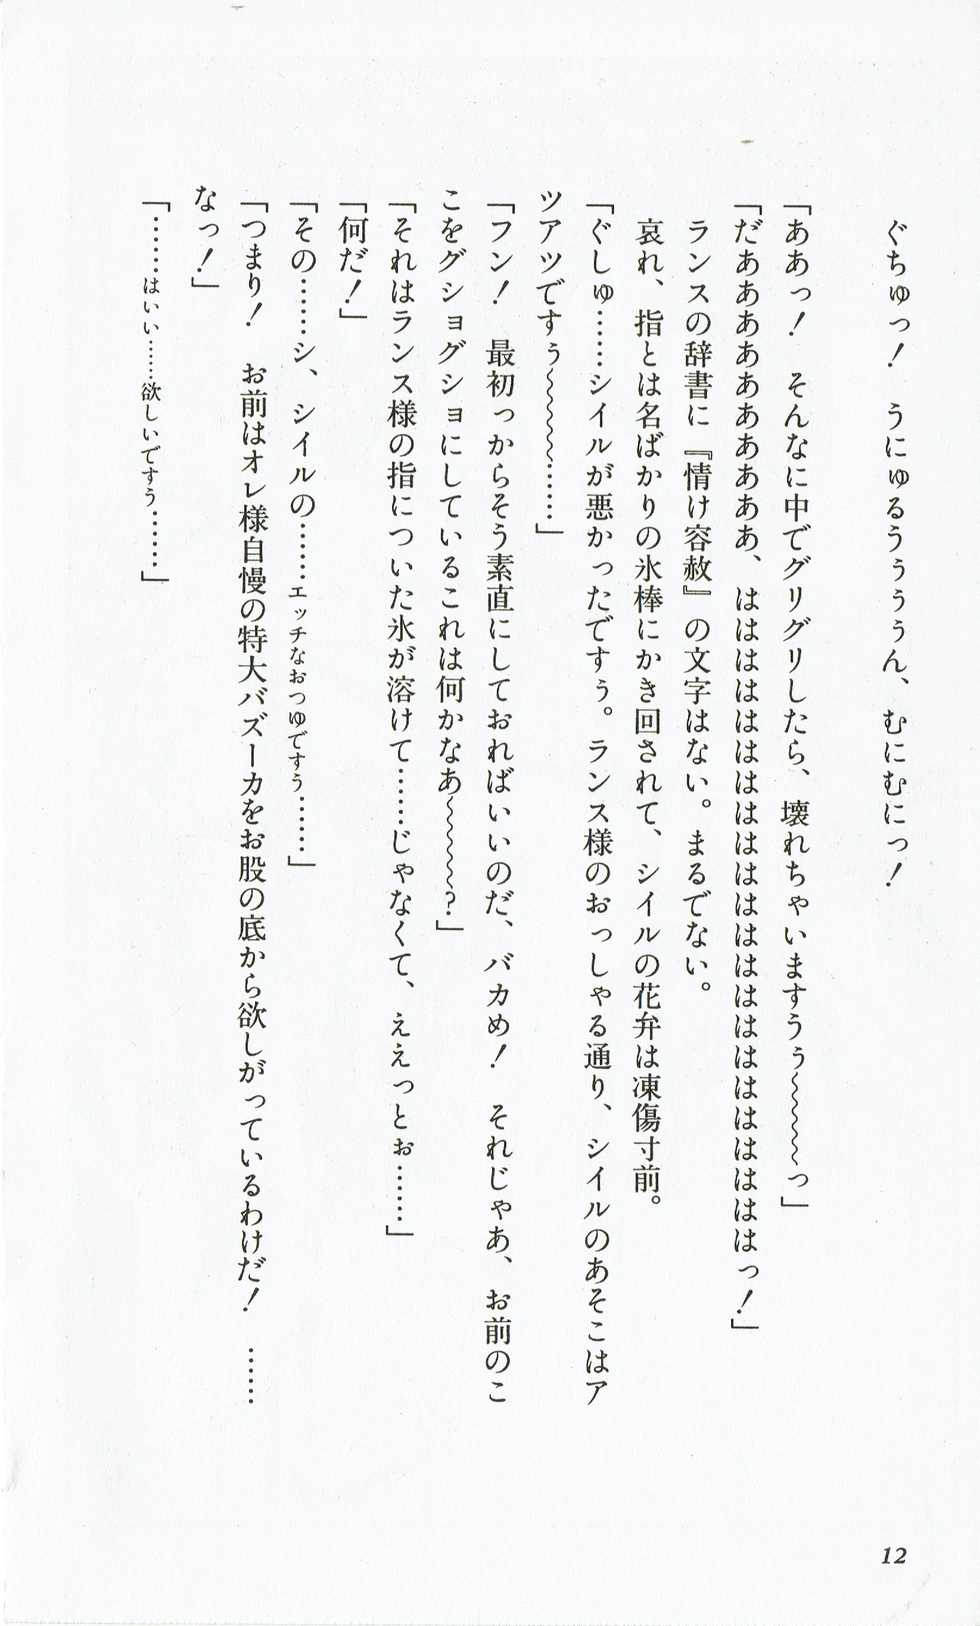 ぐちゅっ！　うにゅるぅぅぅぅん、むにむにっ！
「ああっ！　そんなに中でグリグリしたら、壊れちゃいますうぅ〜〜〜〜っ」
「だああああああああああ、はははははははははははははははははははははっ！」
ランスの辞書に『情け容赦』の文字はない。まるでない。
哀れ、指とは名ばかりの氷棒にかき回されて、シイルの花弁は凍傷寸前。
「ぐしゅ……シイルが悪かったですぅ。ランス様のおっしゃる通り、シイルのあそこはア
ツアツですぅ〜〜〜〜……」
「フン！　最初っからそう素直にしておればいいのだ、バカめ！　それじゃあ、お前のこ
こをグショグショにしているこれは何かなあ〜〜〜〜？」
「それはランス様の指についた氷が溶けて……じゃなくて、ええっとぉ……」
「何だ！」
「その……シ、シイルの……エッチなおつゆですぅ……」
「つまり！　お前はオレ様自慢の特大バズーカをお股の底から欲しがっているわけだ！　……
なっ！」
「……はいい……欲しいですぅ……」
12